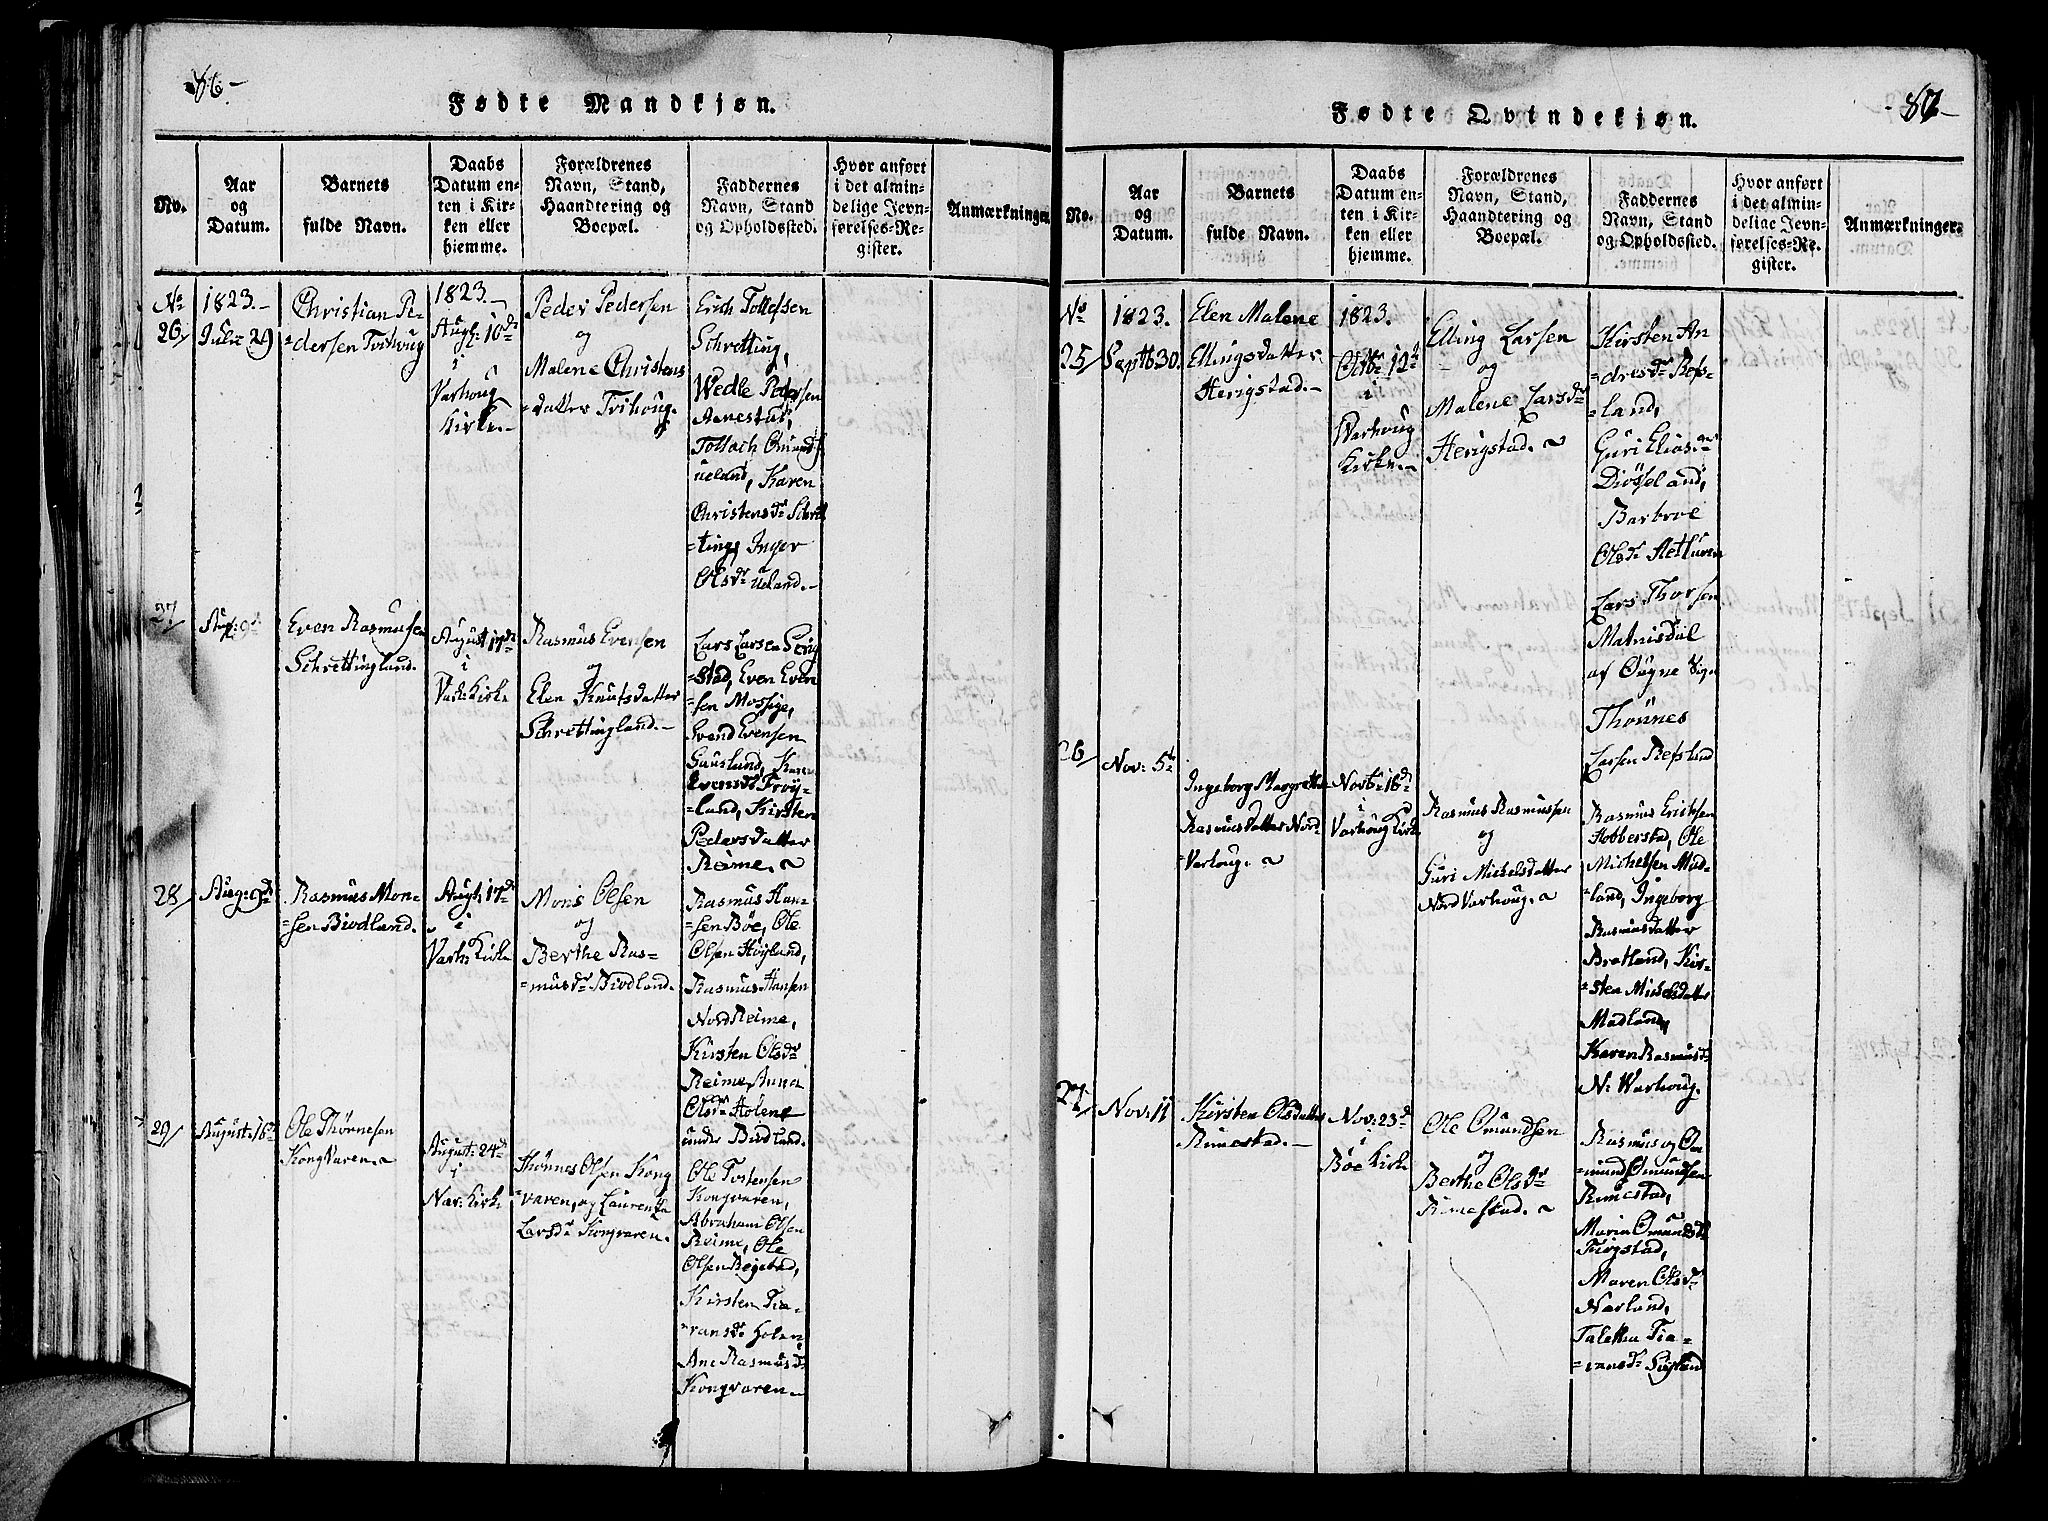 86.-
Fødte Mandkjøn.
No.
Aar
og
Datum.
Barnets
fulde Navn.
Daabs
Datum en-
ten i Kir-
ken eller
hjemme.
Forældrenes
Navn, Stand,
Haandtering og
Boepæl.
Faddernes
Navn, Stand
og Opholdssted.
Hvor anført
i det almin-
delige Jevn-
førelses-Re-
gister.
Anmærkninger.
No
26/
1823.-
Julii 29
Christian Pe-
=dersen Tvihoug
1823.-
Augt: 10de
i
Varhoug
Kirke.-
Peder Pedersen
og
Malene Christens
=datter Tvihoug.
Erich Tollefsen
Schretting,
Wedle Pedersen
Aanestad,
Tollach Omunds
ueland, Karen
Christensdr Schret
=ting, Inger
Olsdr ueland.-
27/
Aug: 9de
Even Rasmusen
Schrettingland.
August 17de
i
Varh: Kirke
Rasmus Evensen
og
Elen Knutsdatter
Schrettingland.-
Lars Larsen Herig
=stad, Even Even
=sen Mossige,
Evend Evensen
Gauslund, Karen
Evensdr Frøy-
=land, Kirsten
Pedersdatter
Reime.
28/
Aug: 9de
Rasmus Mon-
=sen Birdland.
Augt: 17de
i
Varh: Kirke
Mons Olsen
og
Berthe Ras-
=musdr Birdland.
Rasmus Han-
=sen Bøe, Ole
Olsen Høyland,
Rasmus Hansen
Nord Reime,
Kirsten Olsdr
Reime, Anna
Olsdr Holene
under Birdland.
29/
August: 16de
Ole Thørnesen
Kongvaren.
August: 24de
i
Nær: Kirke
Thønnes Olsen Kong
=varen, og Laurentza
Larsdr Kongvaren.
Ole Tostensen
Kongvaren,
Abraham Olsen
Reime, Ole
Olsen Reigstad,
Kirsten Tia-
=ransdr Holen
Ane Rasmusdr
Kongvaren.-
-87-
Fødte Qvindekjøn.
No.
Aar
og
Datum.
Barnets
fulde Navn.
Daabs
Datum en-
ten i Kir-
ken eller
hjemme.
Forældrenes
Navn, Stand,
Haandtering og
Boepæl.
Faddernes
Navn, Stand
og Opholdssted.
Hvor anført
i det almin-
delige Jevn-
førelses-Re-
gister.
Anmærkninger.
No
25/
1823.
Septb 30.
Elen Malene
Ellingsdatter
Herigstad.-
1823.
Octbr 12de
i
Warhoug
Kirke.-
Elling Larsen
og
Malene Larsdr
Herigstad.
Kirsten An
=dresdr Refs-
=land,
Guri Eliasdr
Diøsseland,
Barbroe
Olsdr Aetturen
Lars Thorsen
Matnisdal
af Øugne Sogn
Thønnes
Larsen Refsland
26/
Nov: 5te
Ingeborg Margrethe
Rasmusdatter Nord
=Varhoug.
Novbr 16de
i
Varhoug Kirke
Rasmus Rasmussen
og
Guri Michelsdatter
Nord Varhoug.
Rasmus Ericksen
Hobberstad, Ole
Michelsen Mad-
=land, Ingeborg
Rasmusdatter
Bratland, Kir-
=sten Michelsdatter
Madland,
Karen Rasmusdr
N: Warhoug.
27/
Nov: 11
Kirsten Olsdatter
Rimestad.-
Nov: 23de
i
Bøe Kirke
Ole Omundsen
og
Berthe Olsdr
Rimestad.
Rasmus og Om
=mund Omundsen
Rimestad,
Maria Omundsdr
Tiøgstad,
Maren Olsdr
Nærland,
Talethea Tia-
=ransdr